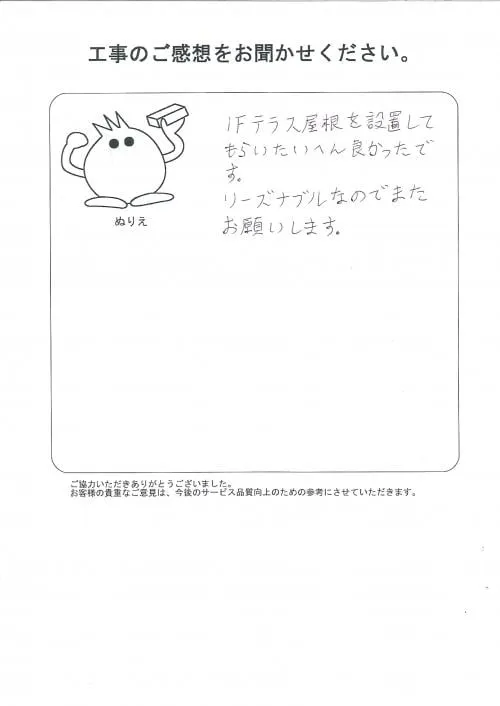 工事のご感想をお聞かせください。
1Fテラス屋根を設置して
もらいたいへん良かったで
す。
リーズナブルなのでまた
お願いします。
ぬりえ
ご協力いただきありがとうございました。
お客様の貴重なご意見は、今後のサービス品質向上のための参考にさせていただきます。